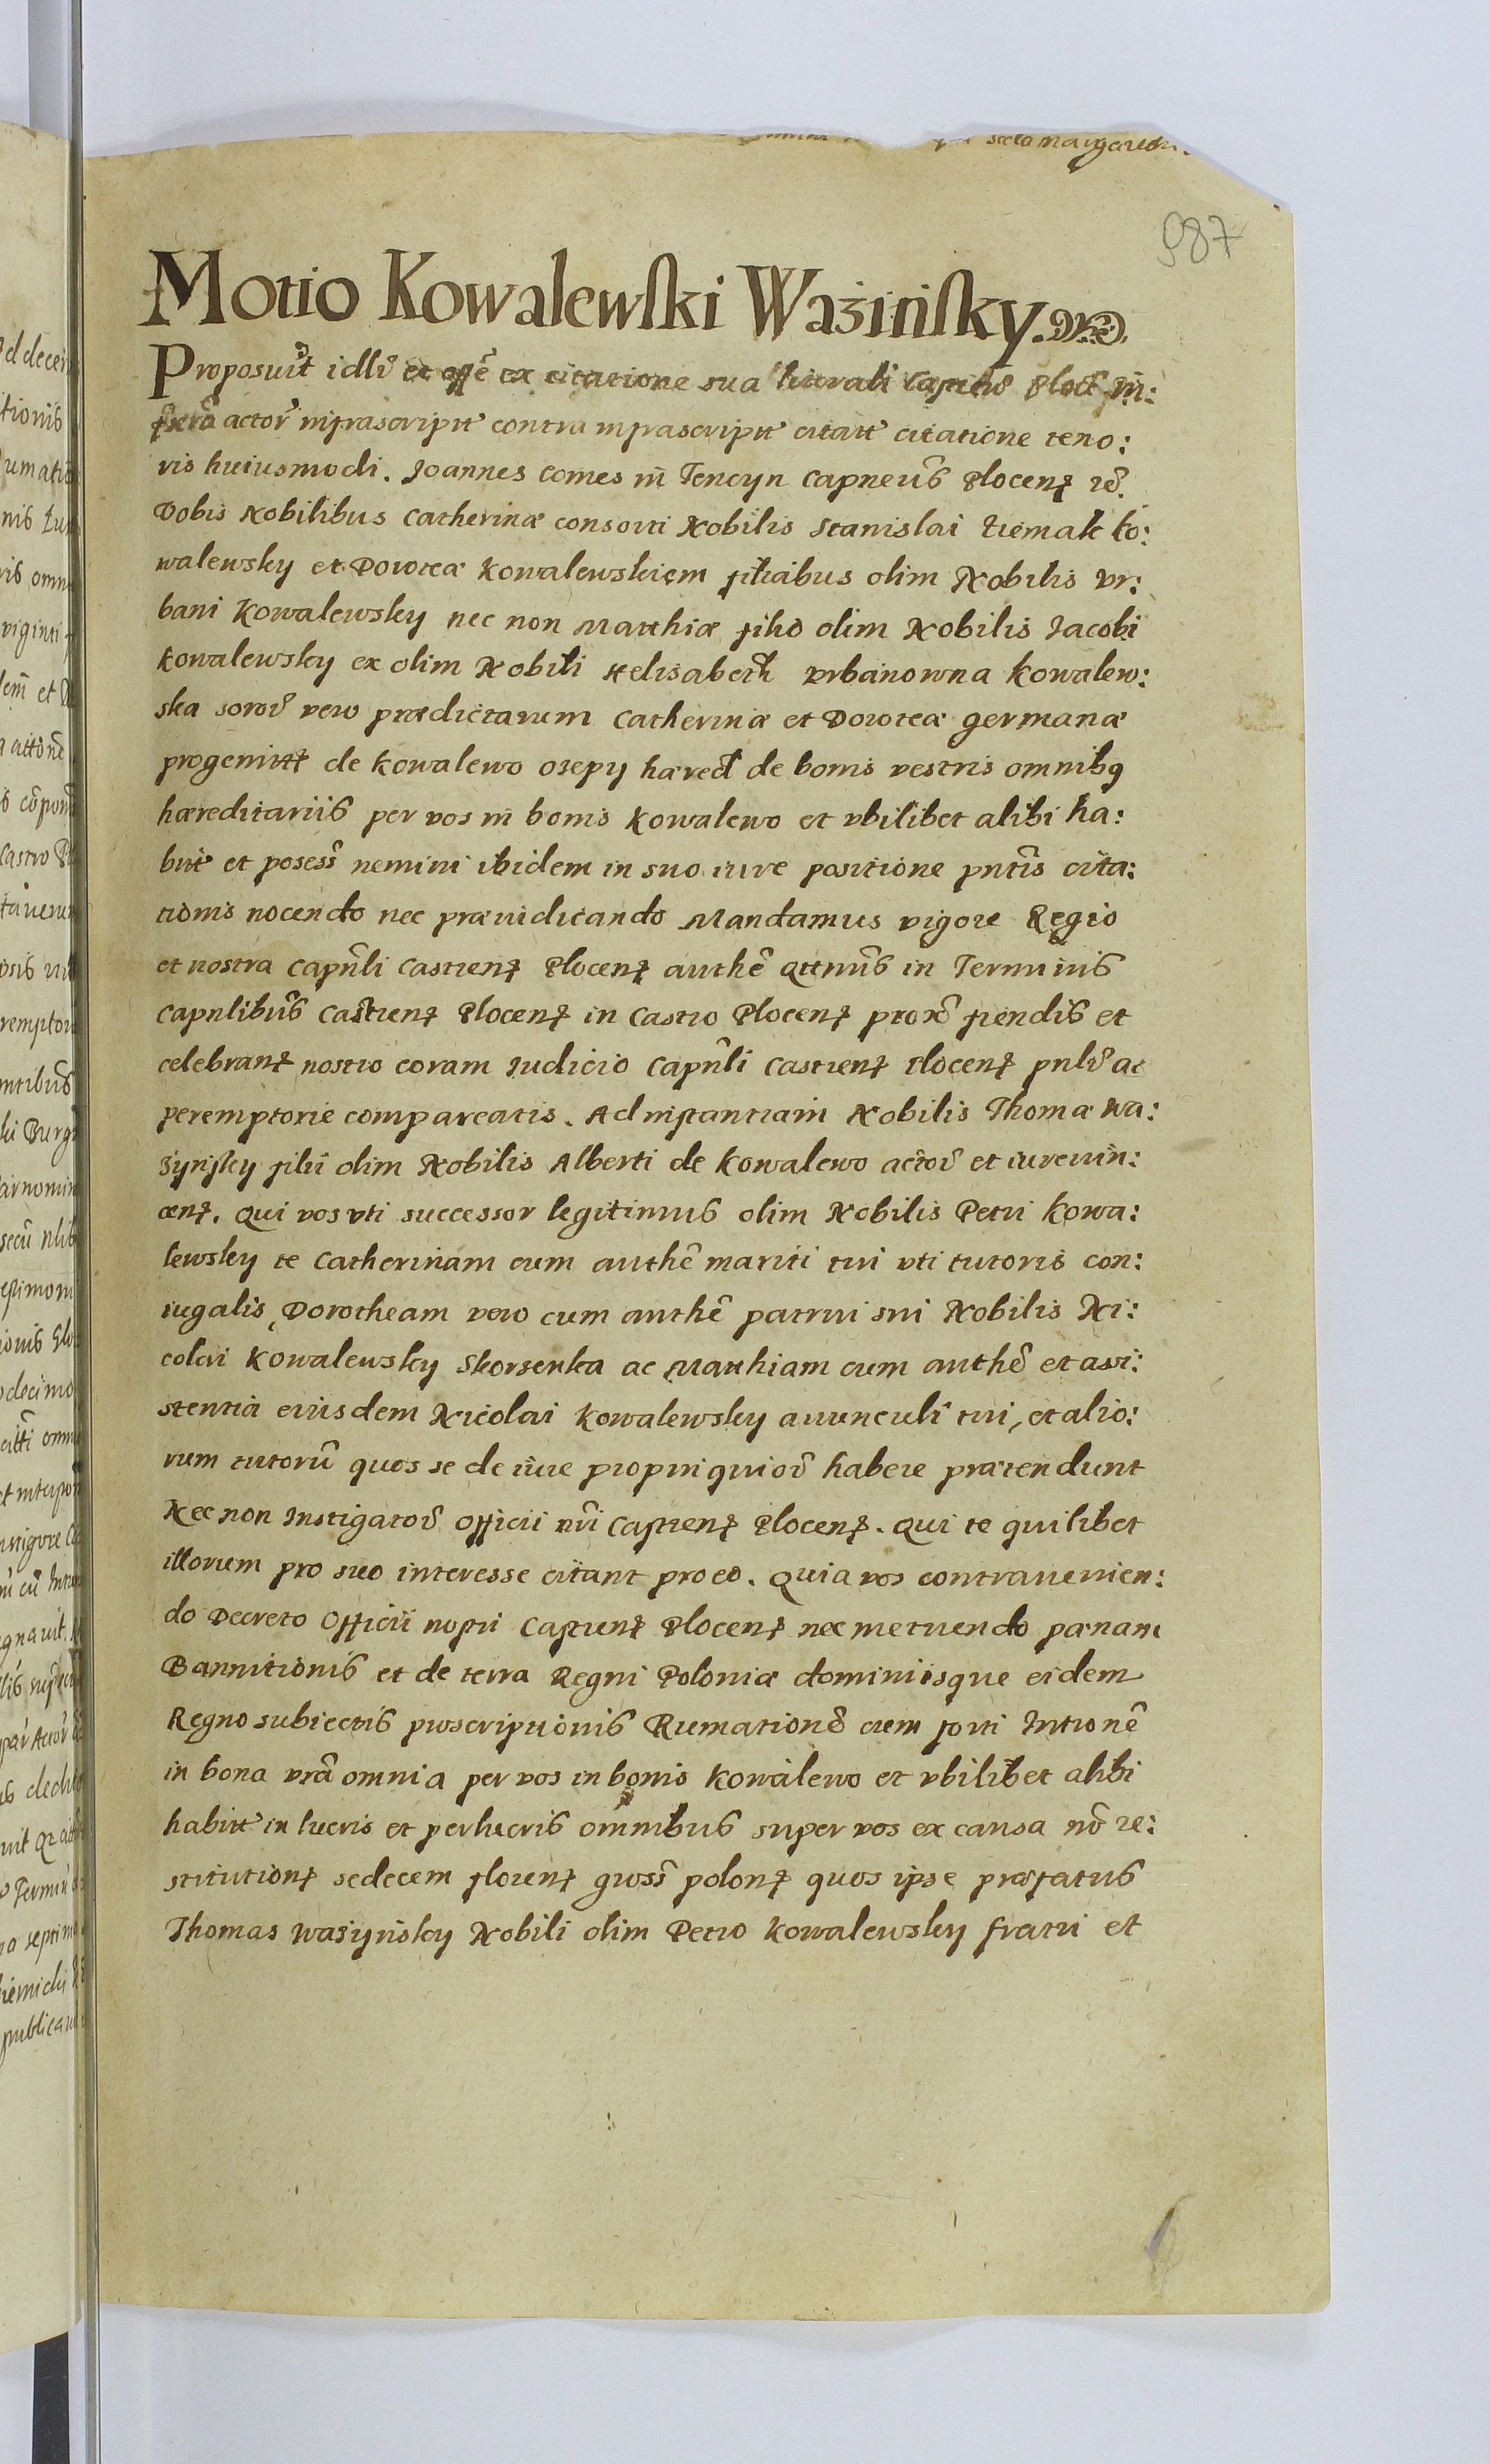 987
Motio Kowalewski Ważińsky.
Proposuit idlr et offẽ ex citatione sua literali Capitlr Plocẽ in:
actor infrascript contra infrascript citatt citatione teno:
ris huiusmodi. Joannes Comes in Tencyn Capneus Plocen
Vobis Nobilibus Catherinæ consorti Nobilis Stanislai Ziemak Ko:
walewsky et Doroteæ Kowalewskiem filiabus olim Nobilis Vr:
bani Kowalewsky nec non Matthiæ filio olim Nobilis Jacobi
Kowalewsky ex olim Nobili Helisabeth Vrbanowna Kowalew:
ska soror vero prædictarum Catherinæ et Doroteæ germana
progenitt de Kowalewo osepy hæred de bonis vestris omnibq
hæreditariis per vos in bonis Kowalewo et vbilibet alibi ha:
bit et posess nemini ibidem in suo iure positione pntis cita:
tionis nocendo nec præiudicando Mandamus vigore Regio
et nostra Capnli Castren Plocen authẽ qttnus in Terminis
Capnlibus Castren Plocen in Castro Plocen proxõ fiendis et
celebran nostro coram Iudicio Capnli Castren Plocen pnlr ac
peremptorie compareatis. Ad instantiam Nobilis Thomæ Wa:
żyńsky filii olim Nobilis Alberti de Kowalewo actor et iurevin:
cen. Qui vos vti successor legitimus olim Nobilis Petri Kowa:
lewsky te Catherinam cum authẽ mariti tui vti tutoris con:
iugalis, Dorotheam vero cum authẽ patrui sui Nobilis Ni:
colai Kowalewsky Skorsenka ac Matthiam cum authẽ et assi:
stentia eiusdem Nicolai Kowalewsky auunculi tui, et alio:
rum tutorũ quos se de iure propinquior habere prætendunt
Nec non Instigator Officii nri Castren Plocen. Qui te quilibet
illorum pro suo interesse citant pro eo. Quia vos contravenien:
do Decreto Officii nostri Castren Plocen nec metuendo pænam
Bannitionis et de terra Regni Poloniæ dominiisque eidem
Regno subiectis proscriptionis Rumationẽ cum forti Intronẽ
in bona vrã omnia per vos in bonis Kowalewo et vbilibet alibi
habitt in lucris et perlucris omnibus super vos ex causa nõ re:
stitution sedecem floren gross polon quos ipse præfatus
Thomas Ważyńsky Nobili olim Petro Kowalewsky fratri et